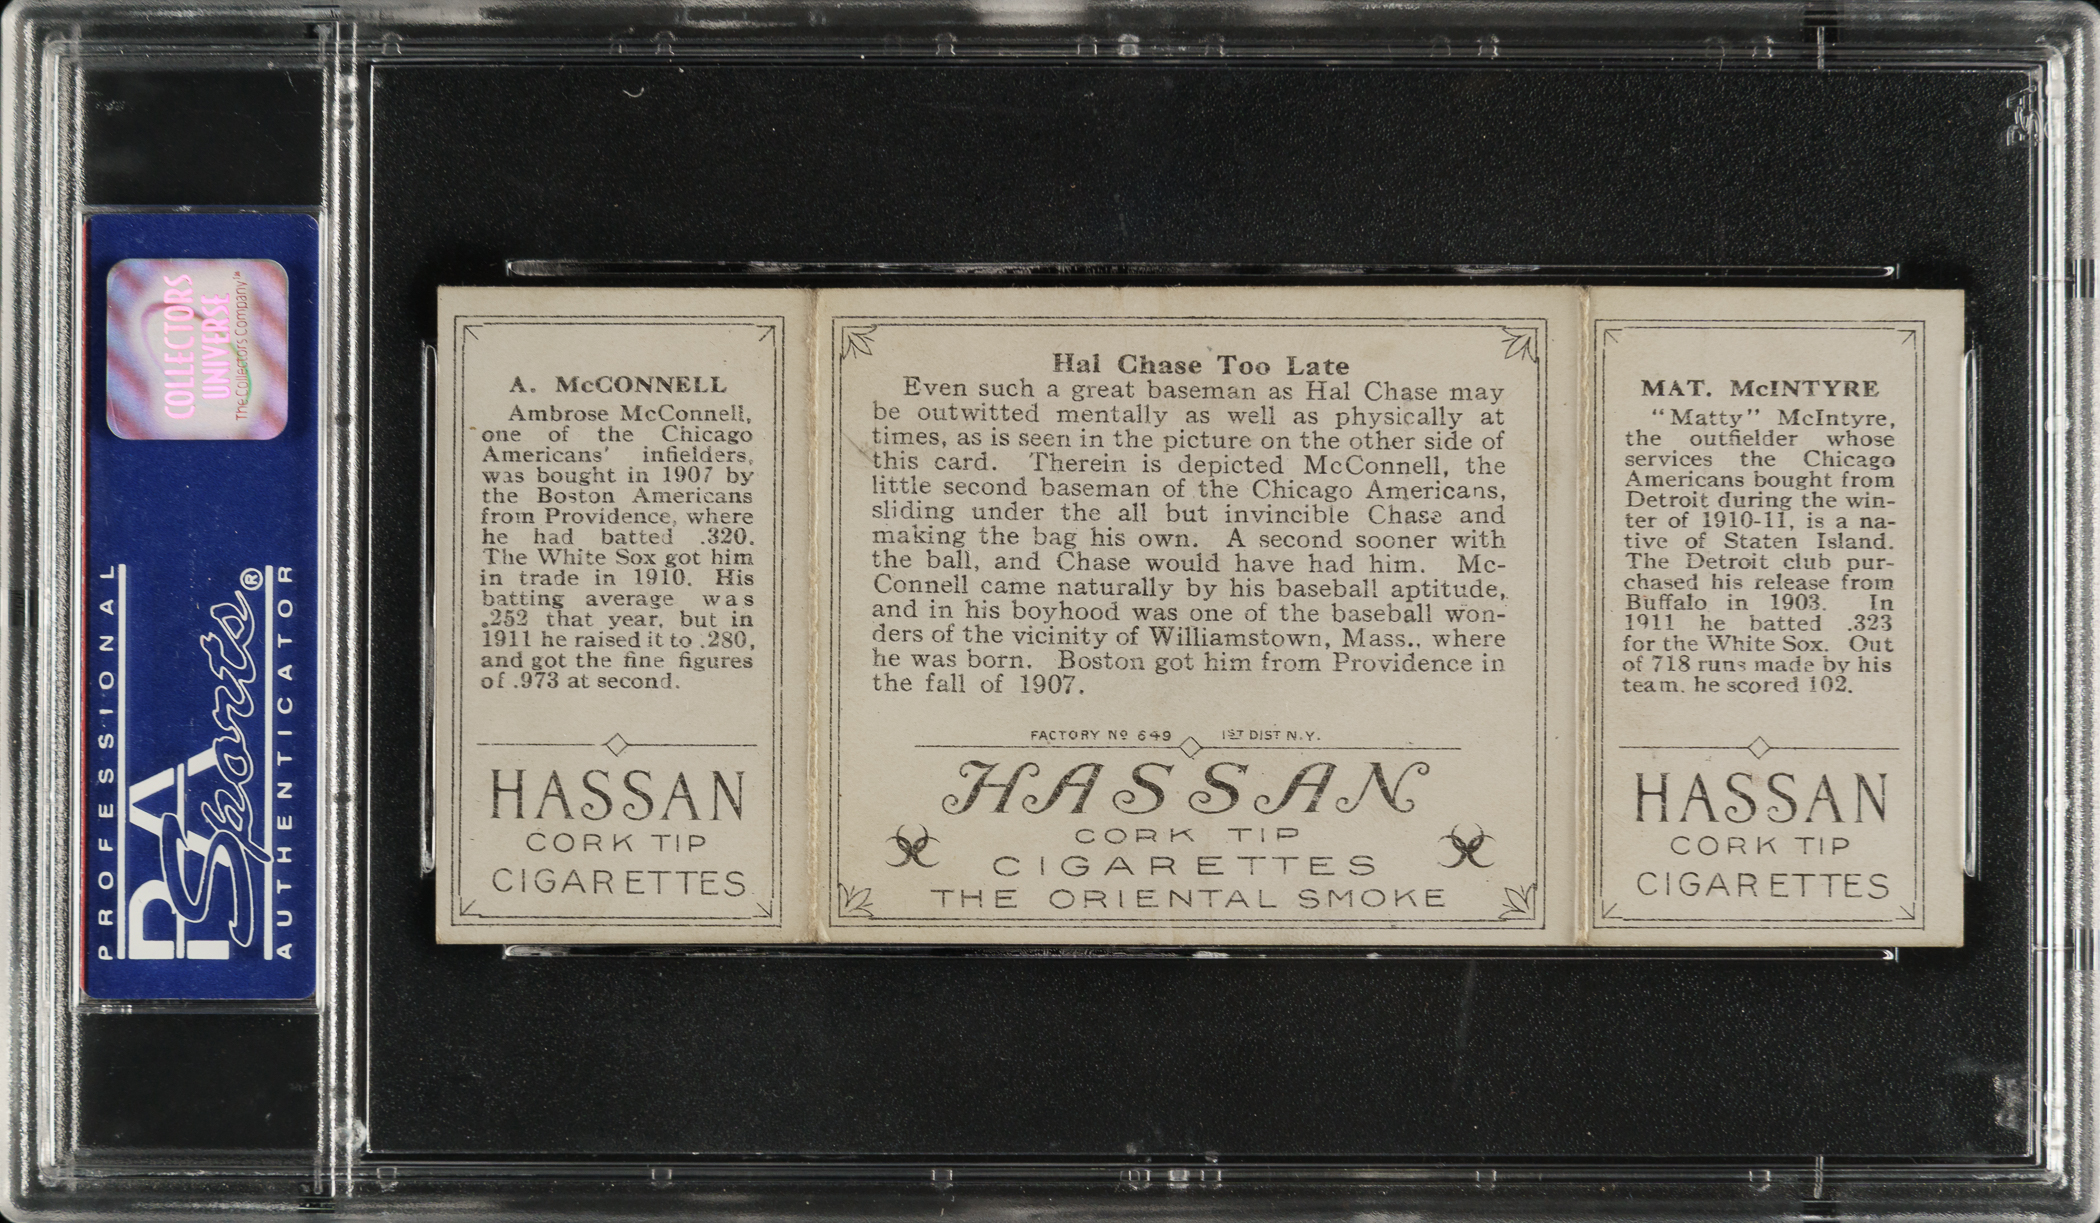 COLLECTORS
UNIVERSE
The Collectors Company™
PROFESSIONAL
PSA
Sports®
AUTHENTICATOR
A. McCONNELL
Ambrose McConnell,
one of the Chicago
Americans' infielders,
was bought in 1907 by
the Boston Americans
from Providence, where
he had batted .320.
The White Sox got him
in trade in 1910. His
batting average was
.252 that year, but in
1911 he raised it to .280,
and got the fine figures
of .973 at second.
HASSAN
CORK TIP
CIGARETTES
Hal Chase Too Late
Even such a great baseman as Hal Chase may
be outwitted mentally as well as physically at
times, as is seen in the picture on the other side of
this card. Therein is depicted McConnell, the
little second baseman of the Chicago Americans,
sliding under the all but invincible Chase and
making the bag his own. A second sooner with
the ball, and Chase would have had him. Mc-
Connell came naturally by his baseball aptitude,
and in his boyhood was one of the baseball won-
ders of the vicinity of Williamstown, Mass., where
he was born. Boston got him from Providence in
the fall of 1907.
FACTORY Nº 649 1ST DIST N.Y.
HASSAN
CORK TIP
CIGARETTES
THE ORIENTAL SMOKE
MAT. McINTYRE
"Matty" McIntyre,
the outfielder whose
services the Chicago
Americans bought from
Detroit during the win-
ter of 1910-11, is a na-
tive of Staten Island.
The Detroit club pur-
chased his release from
Buffalo in 1903. In
1911 he batted .323
for the White Sox. Out
of 718 runs made by his
team, he scored 102.
HASSAN
CORK TIP
CIGARETTES
PSA